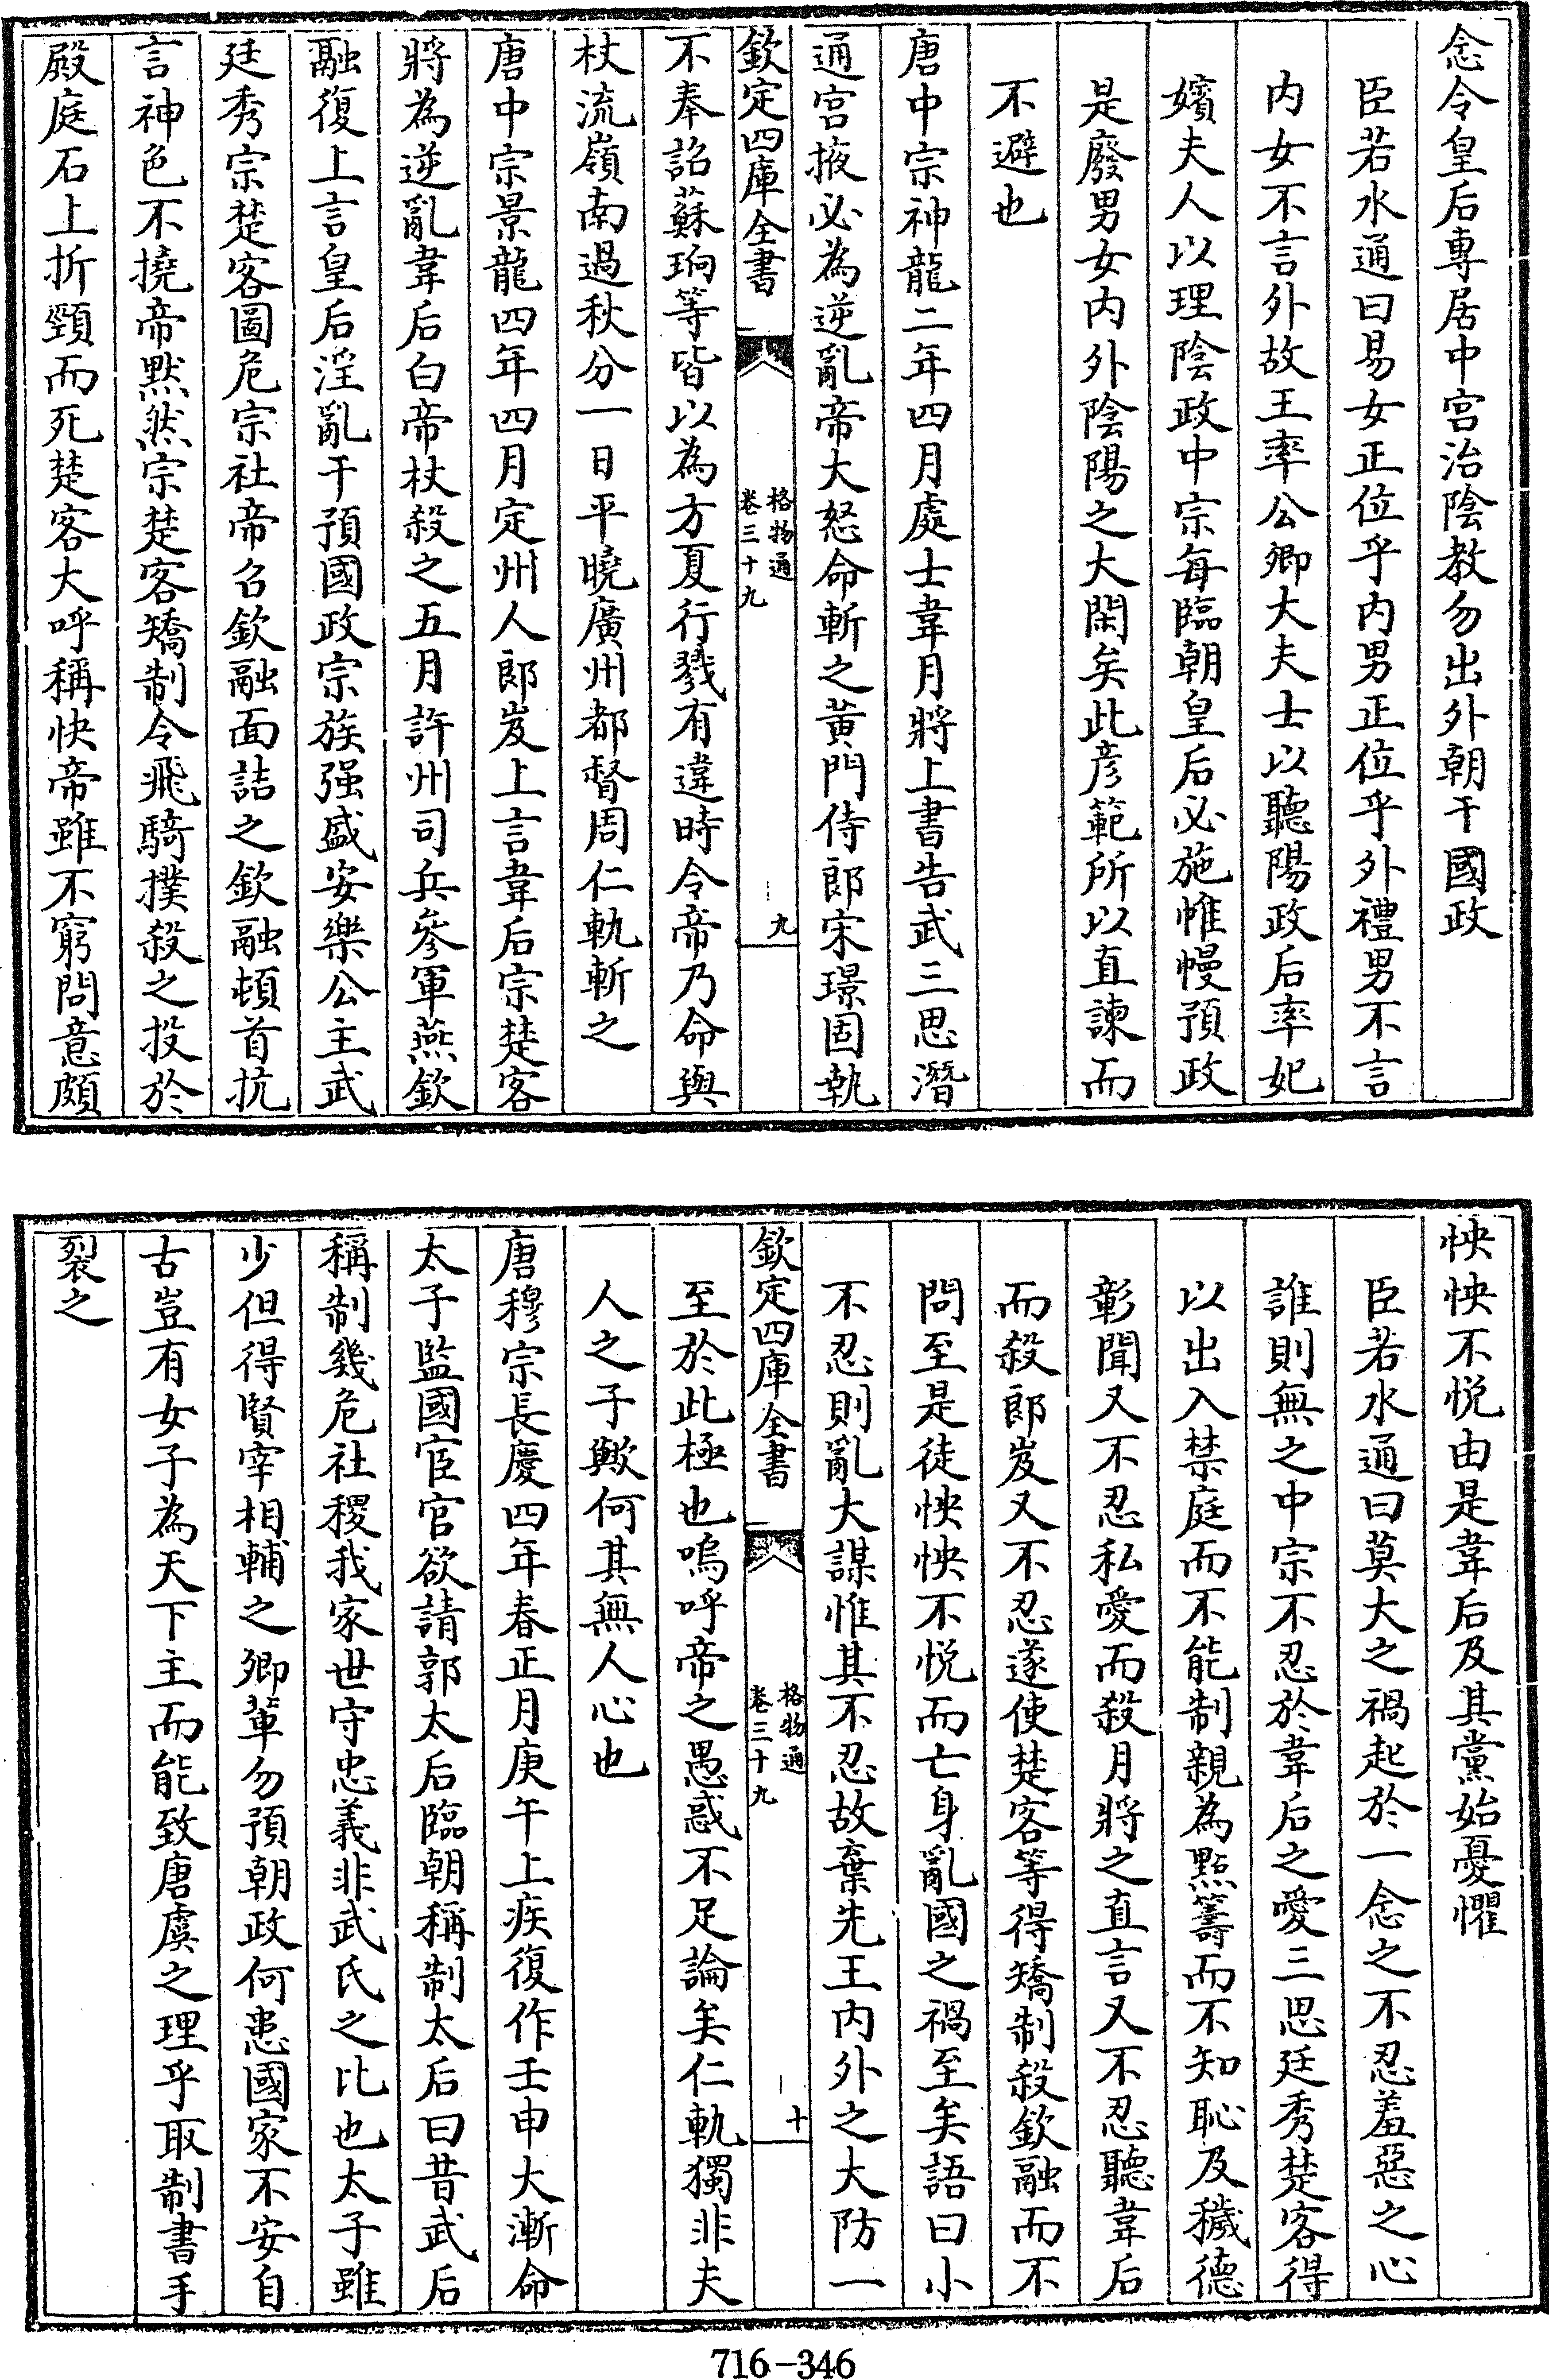 念令皇后專居中宮治陰教勿出外朝干國政
臣若水通曰易女正位乎內男正位乎外禮男不言
內女不言外故王率公卿大夫士以聽陽政后率妃
嬪夫人以理陰政中宗每臨朝皇后必施帷幔預政
是廢男女內外陰陽之大閑矣此彥範所以直諫而
不避也
唐中宗神龍二年四月處士韋月將上書告武三思潛
通宮掖必為逆亂帝大怒命斬之黃門侍郎宋璟固執
欽定四庫全書
格物通
卷三十九
九
不奉詔蘇珦等皆以為方夏行戮有違時令帝乃命與
杖流嶺南過秋分一日平曉廣州都督周仁軌斬之
唐中宗景龍四年四月定州人郎岌上言韋后宗楚客
將為逆亂韋后白帝杖殺之五月許州司兵參軍燕欽
融復上言皇后淫亂干預國政宗族强盛安樂公主武
廷秀宗楚客圖危宗社帝召欽融面詰之欽融頓首抗
言神色不撓帝默然宗楚客矯制令飛騎撲殺之投於
殿庭石上折頸而死楚客大呼稱快帝雖不窮問意頗
怏怏不悅由是韋后及其黨始憂懼
臣若水通曰莫大之禍起於一念之不忍羞惡之心
誰則無之中宗不忍於韋后之愛三思廷秀楚客得
以出入禁庭而不能制親為點籌而不知恥及穢德
彰聞又不忍私愛而殺月將之直言又不忍聽韋后
而殺郎岌又不忍遂使楚客等得矯制殺欽融而不
問至是徒怏怏不悅而亡身亂國之禍至矣語曰小
不忍則亂大謀惟其不忍故棄先王內外之大防一
欽定四庫全書
格物通
卷三十九
十
至於此極也嗚呼帝之愚惑不足論矣仁軌獨非夫
人之子歟何其無人心也
唐穆宗長慶四年春正月庚午上疾復作壬申大漸命
太子監國宦官欲請郭太后臨朝稱制太后曰昔武后
稱制幾危社稷我家世守忠義非武氏之比也太子雖
少但得賢宰相輔之卿輩勿預朝政何患國家不安自
古豈有女子為天下主而能致唐虞之理乎取制書手
裂之
716-346